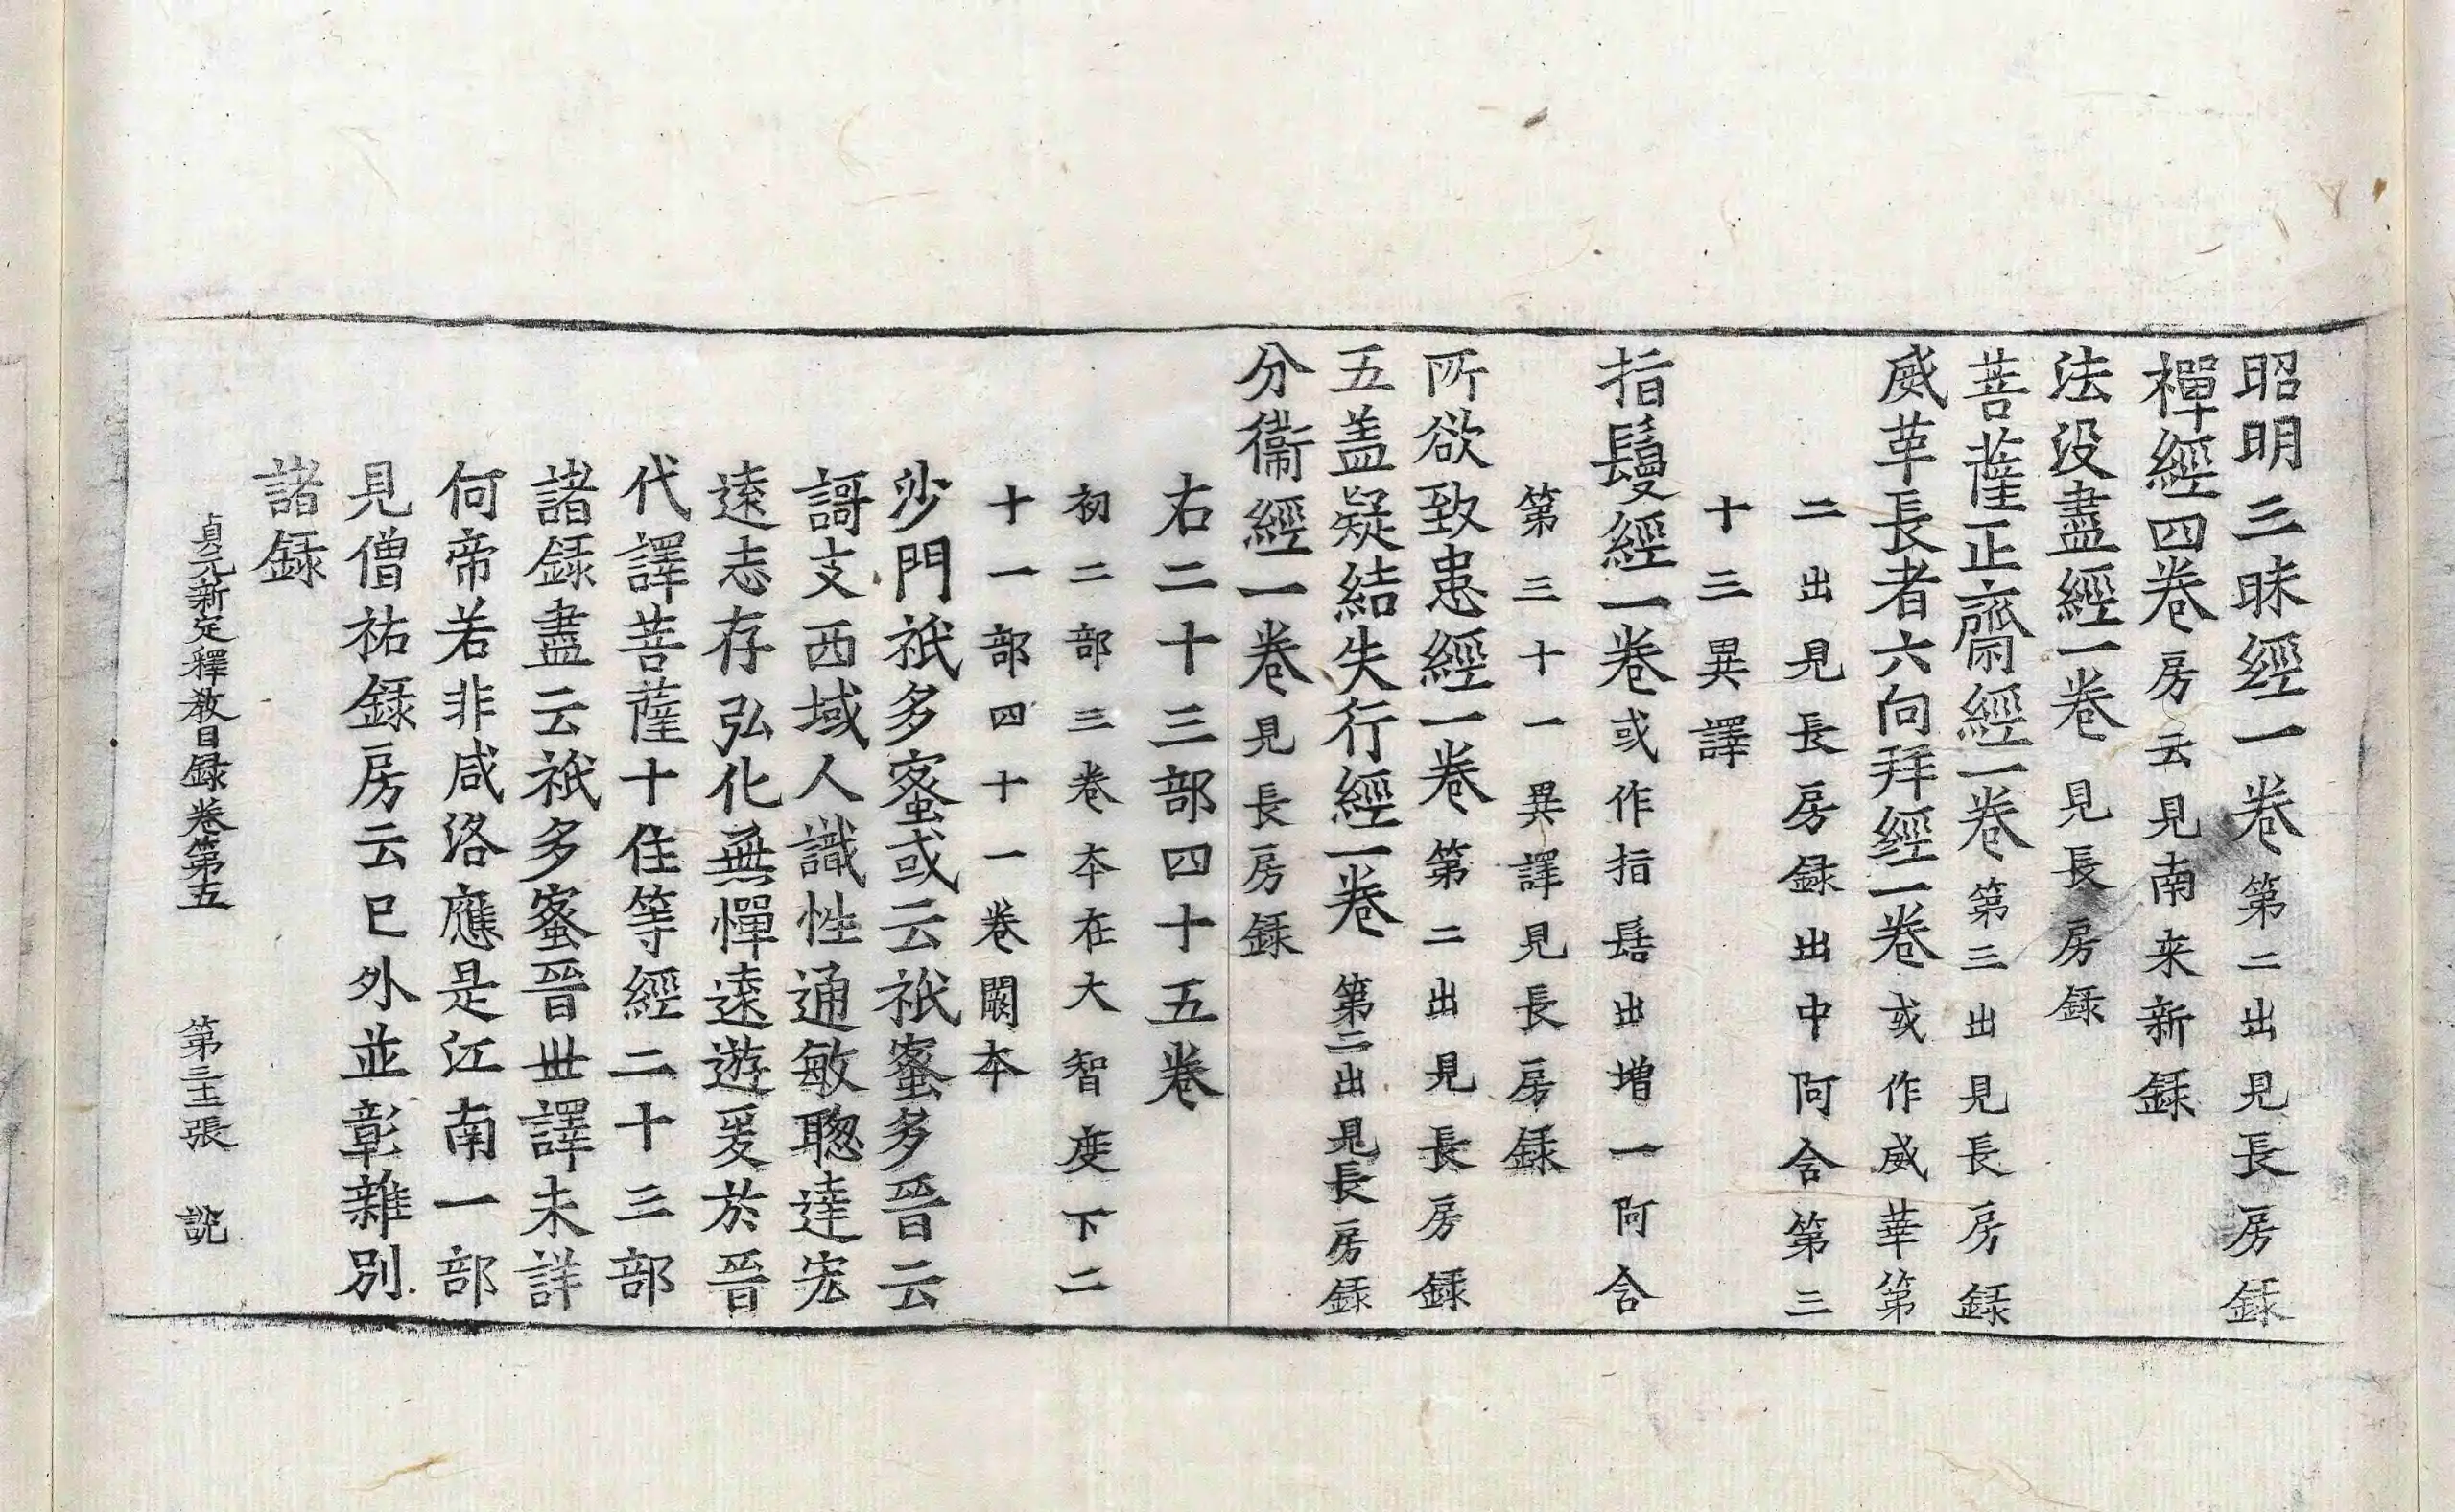 昭明三昧經一卷第二出見長房録
禪經四卷房云見南来新録
法没盡經一卷見長房録
菩薩正齋經一卷第三出見長房録
威革長者六向拜經一卷或作威華第
二出見長房録出中阿含第三
十三異譯
指鬘經一卷或作指髻出增一阿含
第三十一異譯見長房録
所欲致患經一卷第二出見長房録
五盖疑結失行經一卷第二出見長房録
分衞經一卷見長房録
右二十三部四十五卷
初二部三卷本在大智度下二
十一部四十一卷闕本
沙門祇多蜜或云祇蜜多晉云
謌支西域人識性通敏聦達宏
遠志存弘化無憚遠遊爰於晉
代譯菩薩十住等經二十三部
諸録盡云祇多蜜晉丗譯未詳
何帝若非咸洛應是江南一部
見僧祐録房云巳外並彰雜別
諸録
貞元新定釋教目録卷第五 第三十五張 說